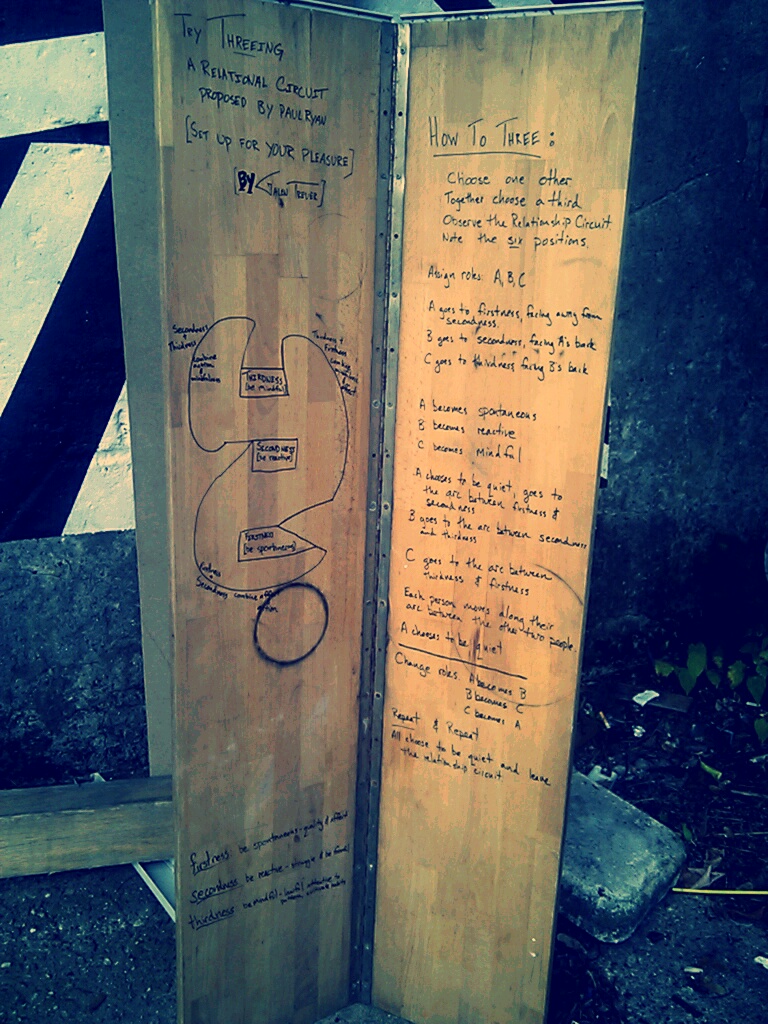 TRY THREEING
A RELATIONAL CIRCUIT
PROPOSED BY PAUL RYAN
[SET UP FOR YOUR PLEASURE]
[BY
Secondness
+
Thirdness
combine
Thirdness +
Firstness
combine
THIRDNESS
[be mindful]
SECONDNESS
[be reactive]
FIRSTNESS
[be spontaneous]
Secondness combine
firstness: be spontaneous - quality &
secondness: be reactive - struggle &
thirdness: be mindful - lawful
HOW TO THREE:
Choose one other
Together choose a third
Observe the Relationship Circuit.
Note the six positions.
Assign roles: A, B, C
A goes to firstness, facing away from
secondness.
B goes to secondness, facing A's back
C goes to thirdness facing B's back
A becomes spontaneous
B becomes reactive
C becomes mindful
A chooses to be quiet, goes to
the arc between firstness &
secondness
B goes to the arc between secondness
and thirdness
C goes to the arc between
thirdness & firstness
Each person moves along their
arc between the other two people.
A chooses to be quiet
Change roles: A becomes B
B becomes C
C becomes A
Repeat & Repeat
All choose to be quiet and leave
the relationship circuit